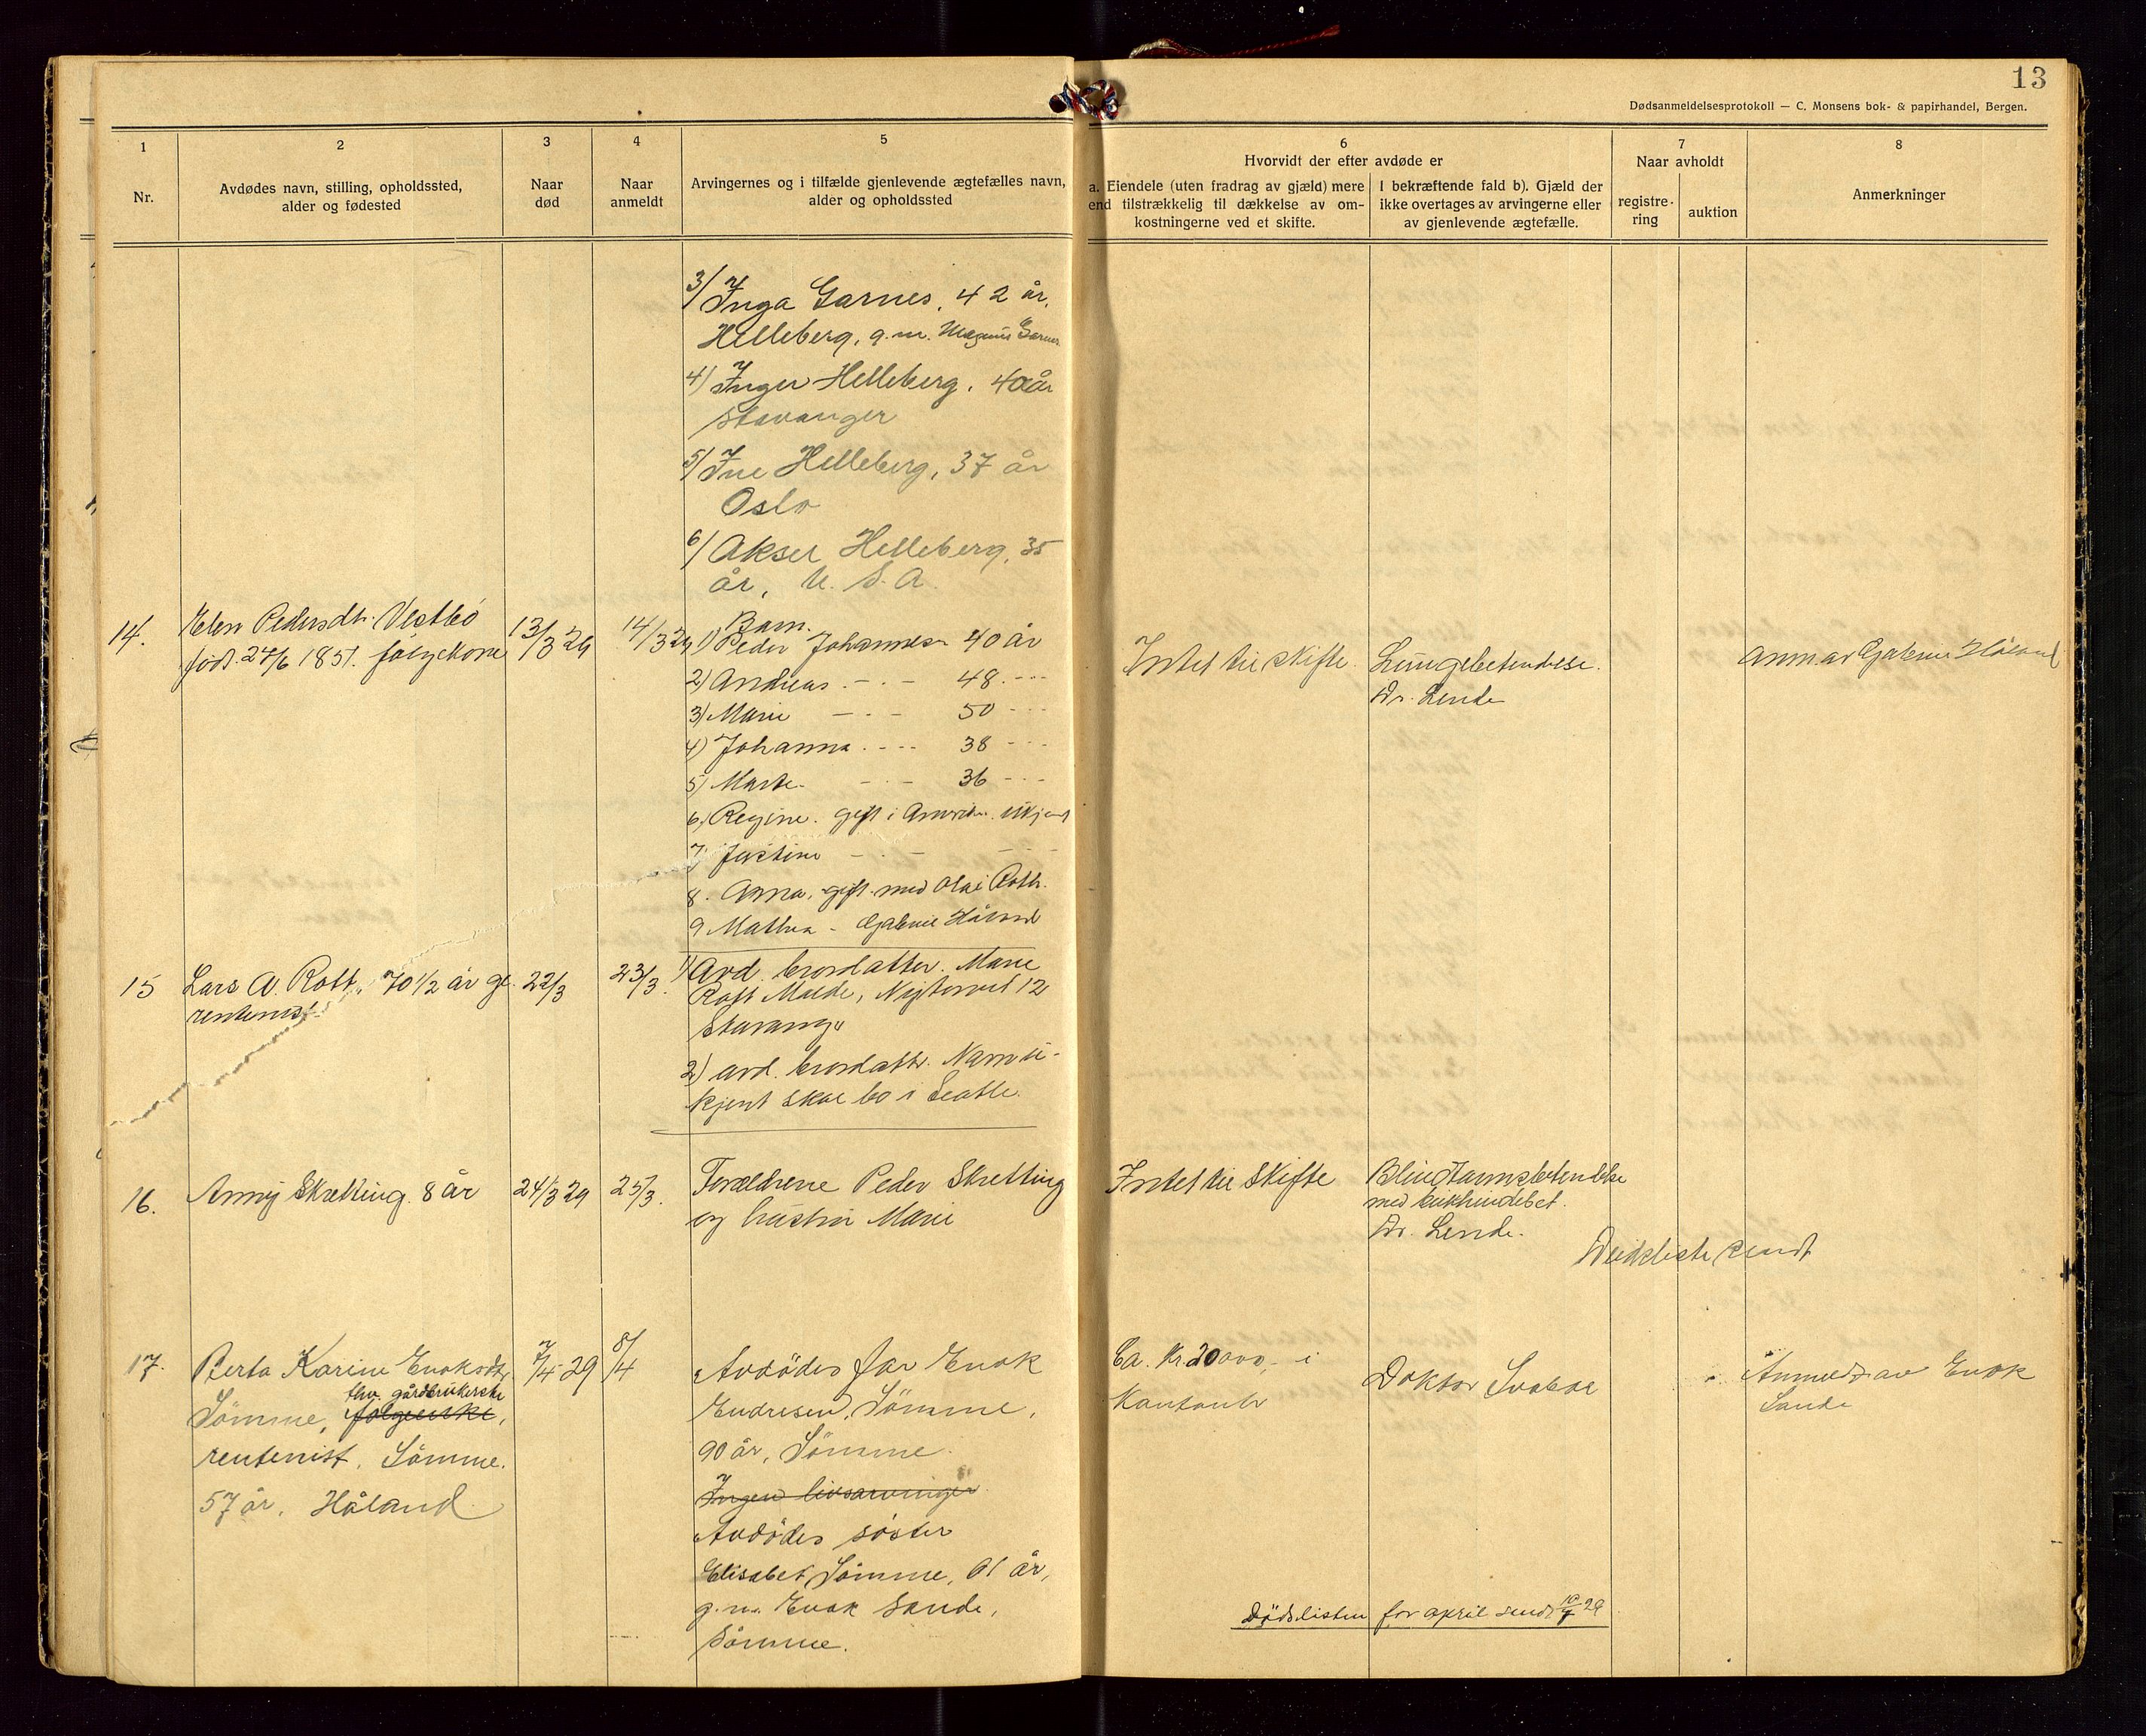 13
Dødsanmeldelsesprotokoll — C. Monsens bok- & papirhandel, Bergen.
1
Nr.
2
Avdødes navn, stilling, opholdssted,
alder og fødested
3
Naar
død
4
Naar
anmeldt
5
Arvingernes og i tilfælde gjenlevende ægtefælles navn,
alder og opholdssted
6
Hvorvidt der efter avdøde er
a. Eiendele (uten fradrag av gjæld) mere
end tilstrækkelig til dækkelse av om-
kostningerne ved et skifte.
I bekræftende fald b). Gjæld der
ikke overtages av arvingerne eller
av gjenlevende ægtefælle.
7
Naar avholdt
registre-
ring
auktion
8
Anmerkninger
3/ Inga Garnes, 42 år,
Helleberg, g.m. Magnus Garnes
4) Inger Helleberg, 40 år
Stavanger
5/ Ine Helleberg, 37 år
Oslo
6/ Aksel Helleberg, 35
år, U.S.A.
14. Elen Pedersdtr. Vestbö
född 27/6 1851. følgekone
13/3 29
14/3 29
Barn.
1) Peder Johannesen 40 år
2) Andreas - . - 48 . - -
3) Marie - . - 50 - - -
4) Johanna . - - 38 - - -
5) Marte - . - 36 - - -
6) Regine. gift i Amerika. ukjent
7) - . - - - -
8. Anna, gift med Olai Rott.
9 Mathea - Gabriel Håland
Intet til skifte.
Lungebetendelse.
Dr. Lende
Anm. av Gabriel Håland
15 Lars A. Rott, 70 1/2 år gl.
rentenist
22/3
23/3.
1) Avd. brordatter. Marie
Rott Malde, 12
Stavanger
2) avd. brordattr. Navn u-
kjent skal bo i Seattle.
16. Anny Skretting. 8 år
24/3 29
25/3.
Forældrene Peder Skretting
og hustru Marie
Intet til Skifte
Blindtarmsbetendelse
med bukhindebet.
Dr. Lende.
Dödsliste sendt
17. Berta Karine Enoksdtr
Sömme, fhv. gårdbrukerske
rentenist, Sömme.
57 år, Håland
7/4 29
8/4
Avdödes far Enok
Endresen, Sömme,
90 år, Sömme.
Ingen livsarvinger.
Avdödes söster
Elisabet Sömme, 61 år,
g.m. Enok Sande,
Sömme.
Ca. kr. 20 000,- i
Kontanter
Doktor
Anmeldt av Enok
Sande
Dödslisten for april sendt 29